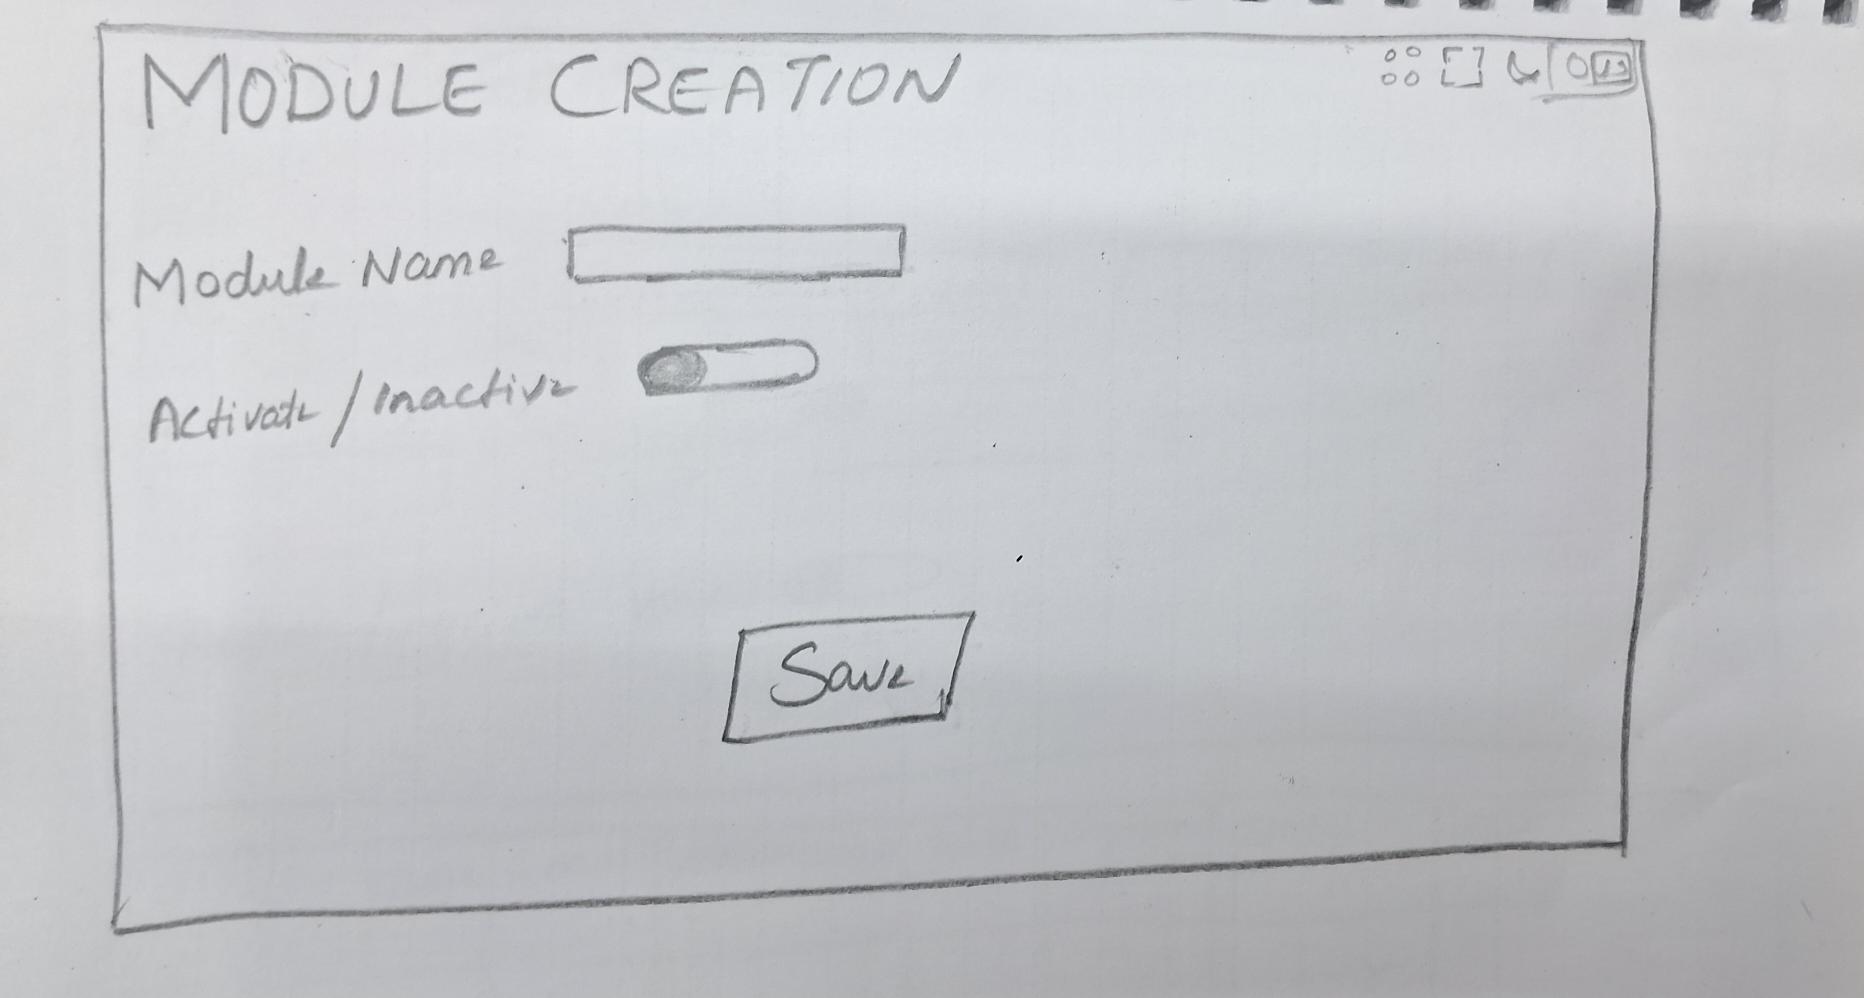 MODULE CREATION
Module Name
Activate / Inactive
Save